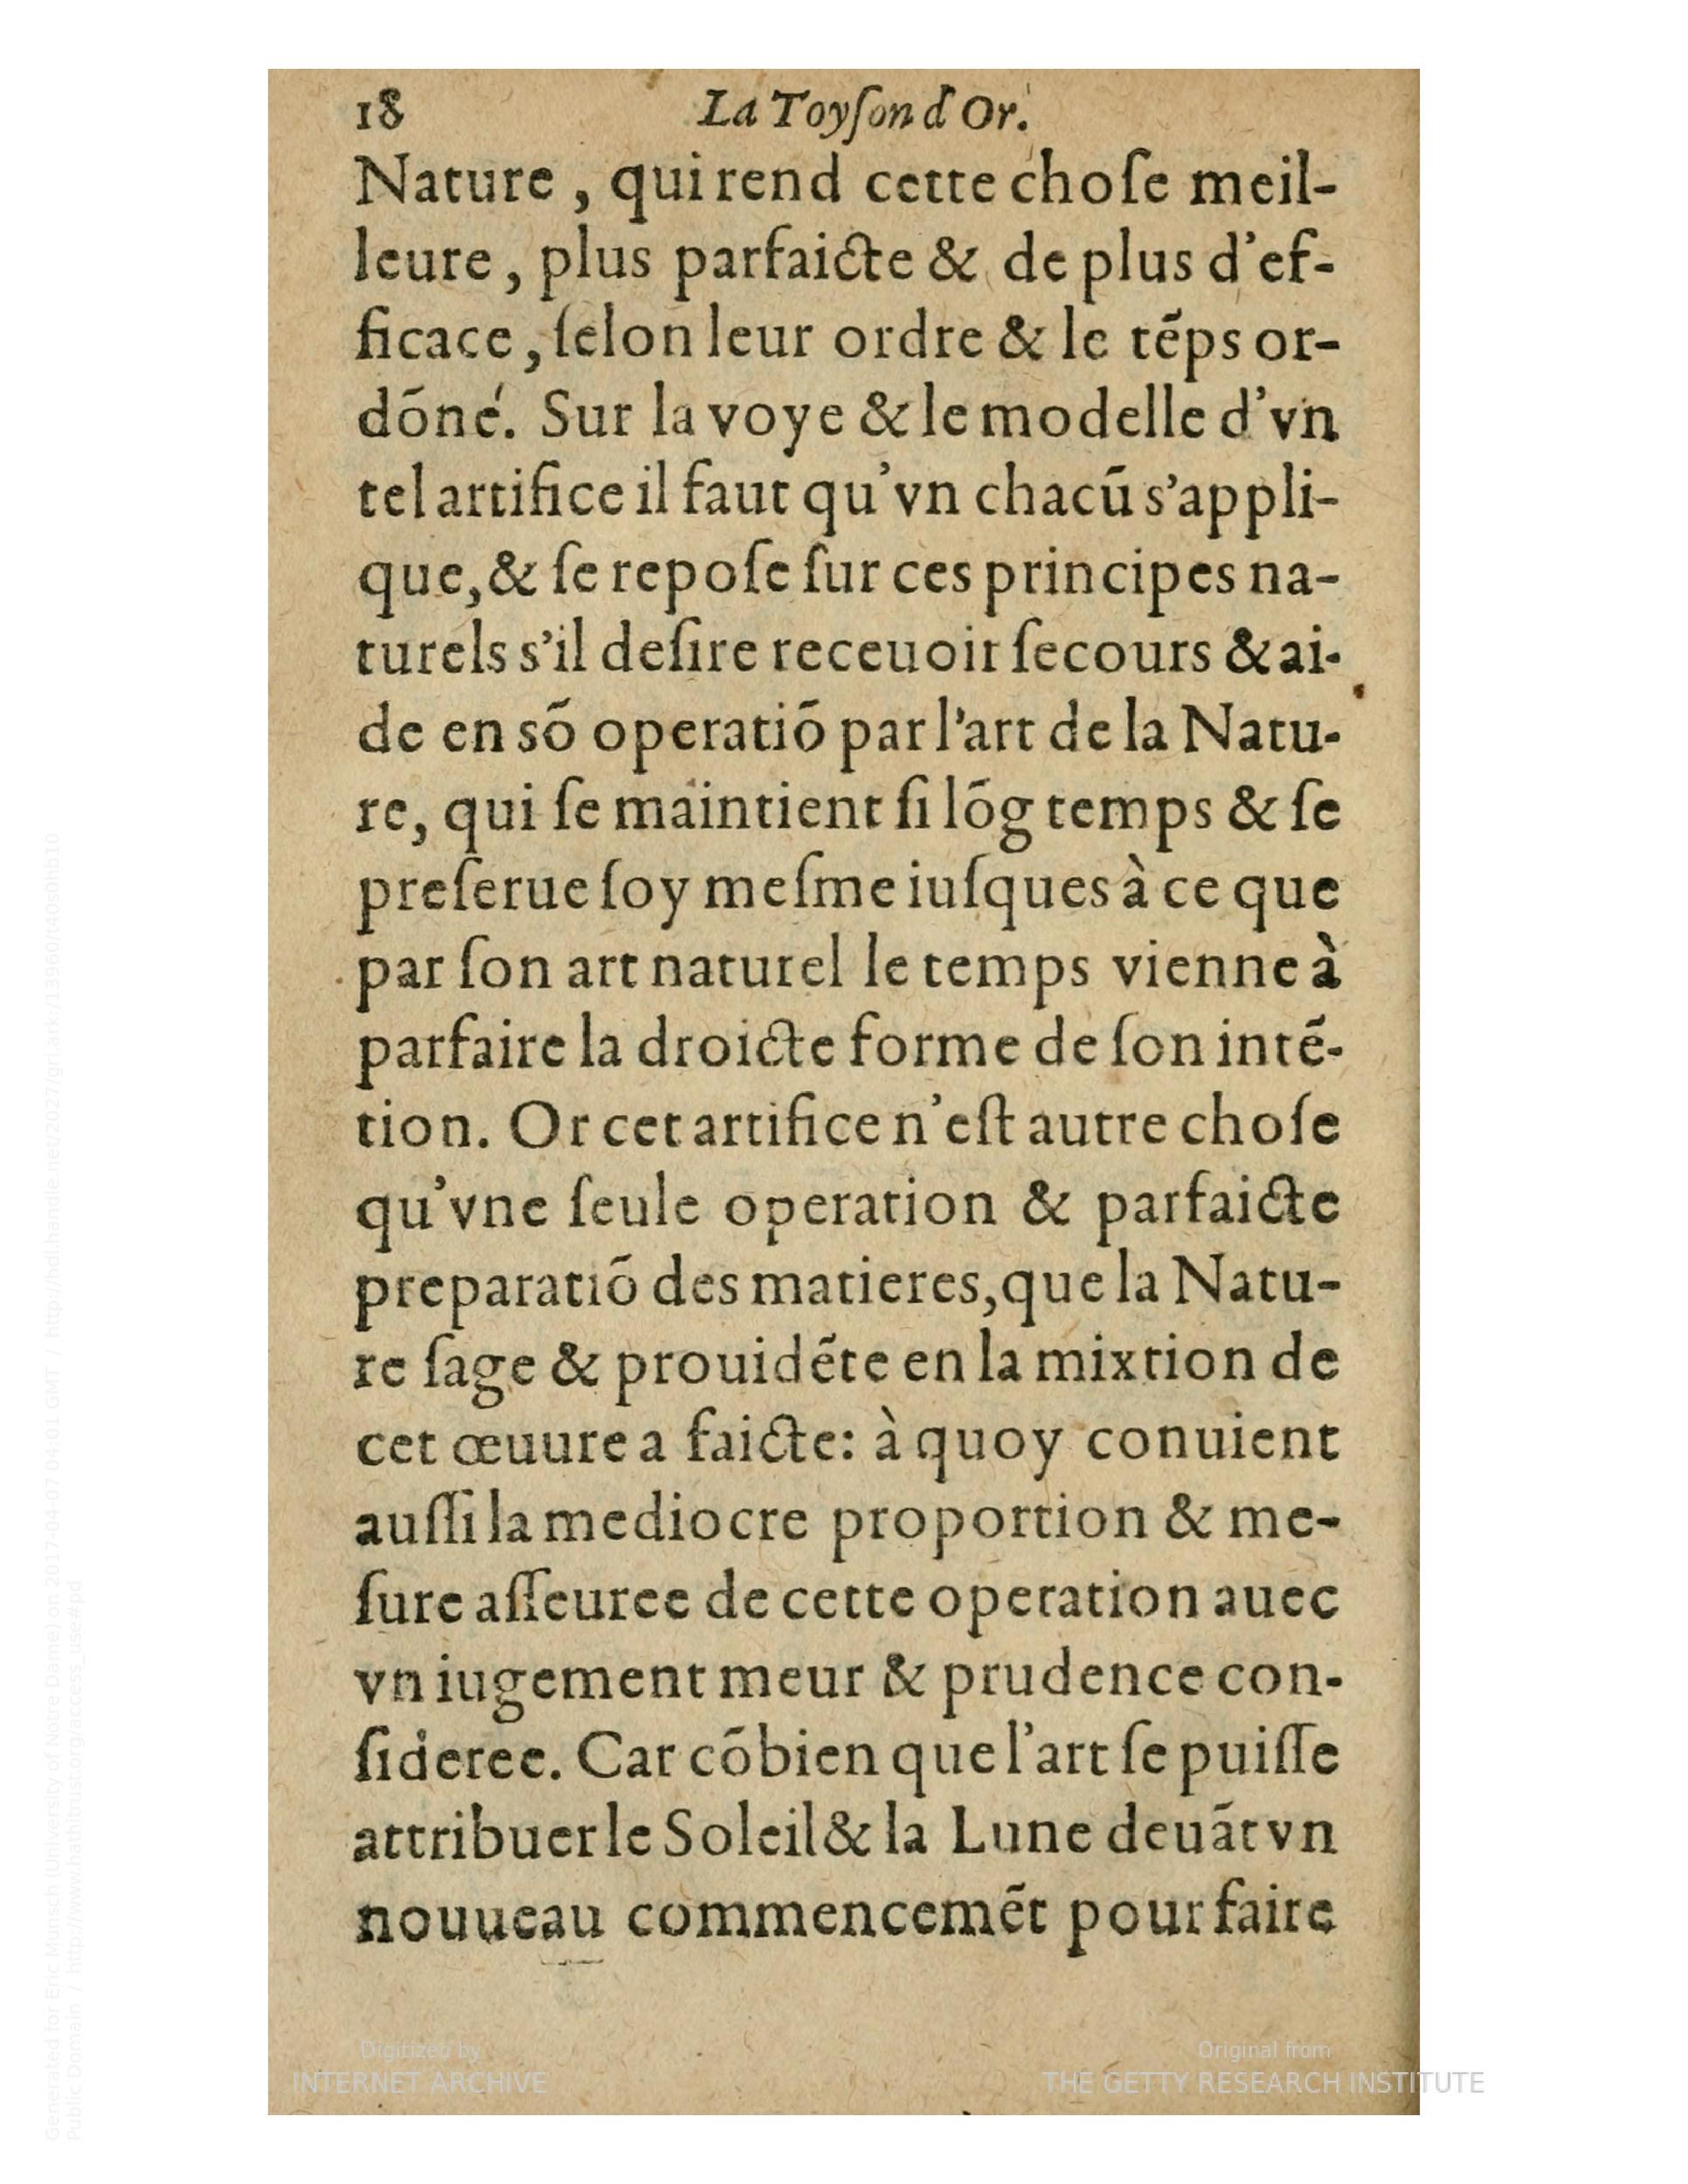 18 La Toyſon d'Or.
Nature , qui rend cette choſe meil-
leure , plus parfaicte & de plus d'ef-
ficace , ſelon leur ordre & le tẽps or-
dõné. Sur la voye & le modelle d'vn
tel artifice il faut qu'vn chacũ s'appli-
que, & ſe repoſe ſur ces principes na-
turels s'il deſire receuoir ſecours & ai-
de en sõ operatiõ par l'art de la Natu-
re, qui ſe maintient ſi lõg temps & ſe
preſerue ſoy meſme iuſques à ce que
par ſon art naturel le temps vienne à
parfaire la droicte forme de ſon intẽ-
tion. Or cet artifice n'eſt autre choſe
qu'vne ſeule operation & parfaicte
preparatiõ des matieres, que la Natu-
re ſage & prouidẽte en la mixtion de
cet œuure a faicte: à quoy conuient
auſſi la mediocre proportion & me-
ſure aſſeuree de cette operation auec
vn iugement meur & prudence con-
ſideree. Car cõbien que l'art ſe puiſſe
attribuer le Soleil & la Lune deuãt vn
nouueau commencemẽt pour faire
Digitized by
INTERNET ARCHIVE
Original from
THE GETTY RESEARCH INSTITUTE
Generated for Eric Munsch (University of Notre Dame) on 2017-04-07 04:01 GMT / http://hdl.handle.net/2027/gri.ark:/13960/t40s0hb10
Public Domain / http://www.hathitrust.org/access_use#pd